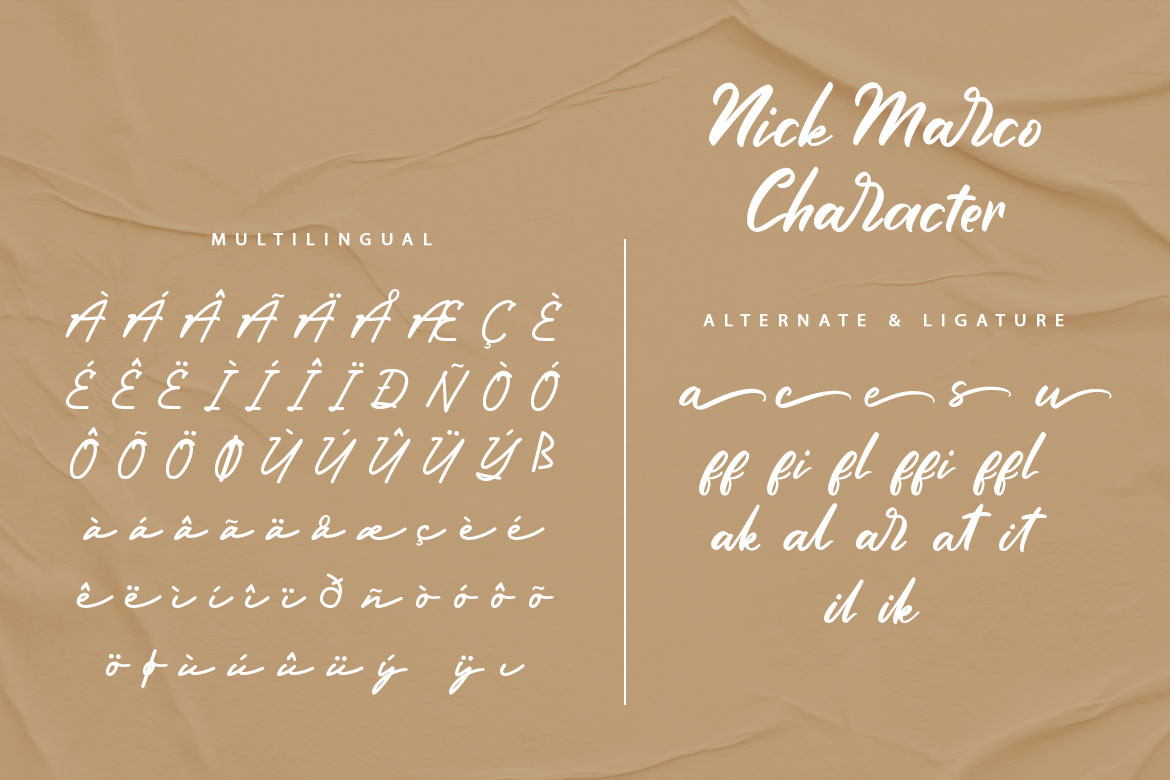 Nick Marco
Character
MULTILINGUAL
À Á Â Ã Ä Å Æ Ç È
É Ê Ë Ì Í Î Ï Ð Ñ Ò Ó
Ô Õ Ö Ø Ù Ú Û Ü Ý ß
à á â ã ä å æ ç è é
ê ë ì í î ï ð ñ ò ó ô õ
ö ø ù ú û ü ý ÿ ı
ALTERNATE & LIGATURE
a c e s u
ff fi fl ffi ffl
ak al ar at it
il ik